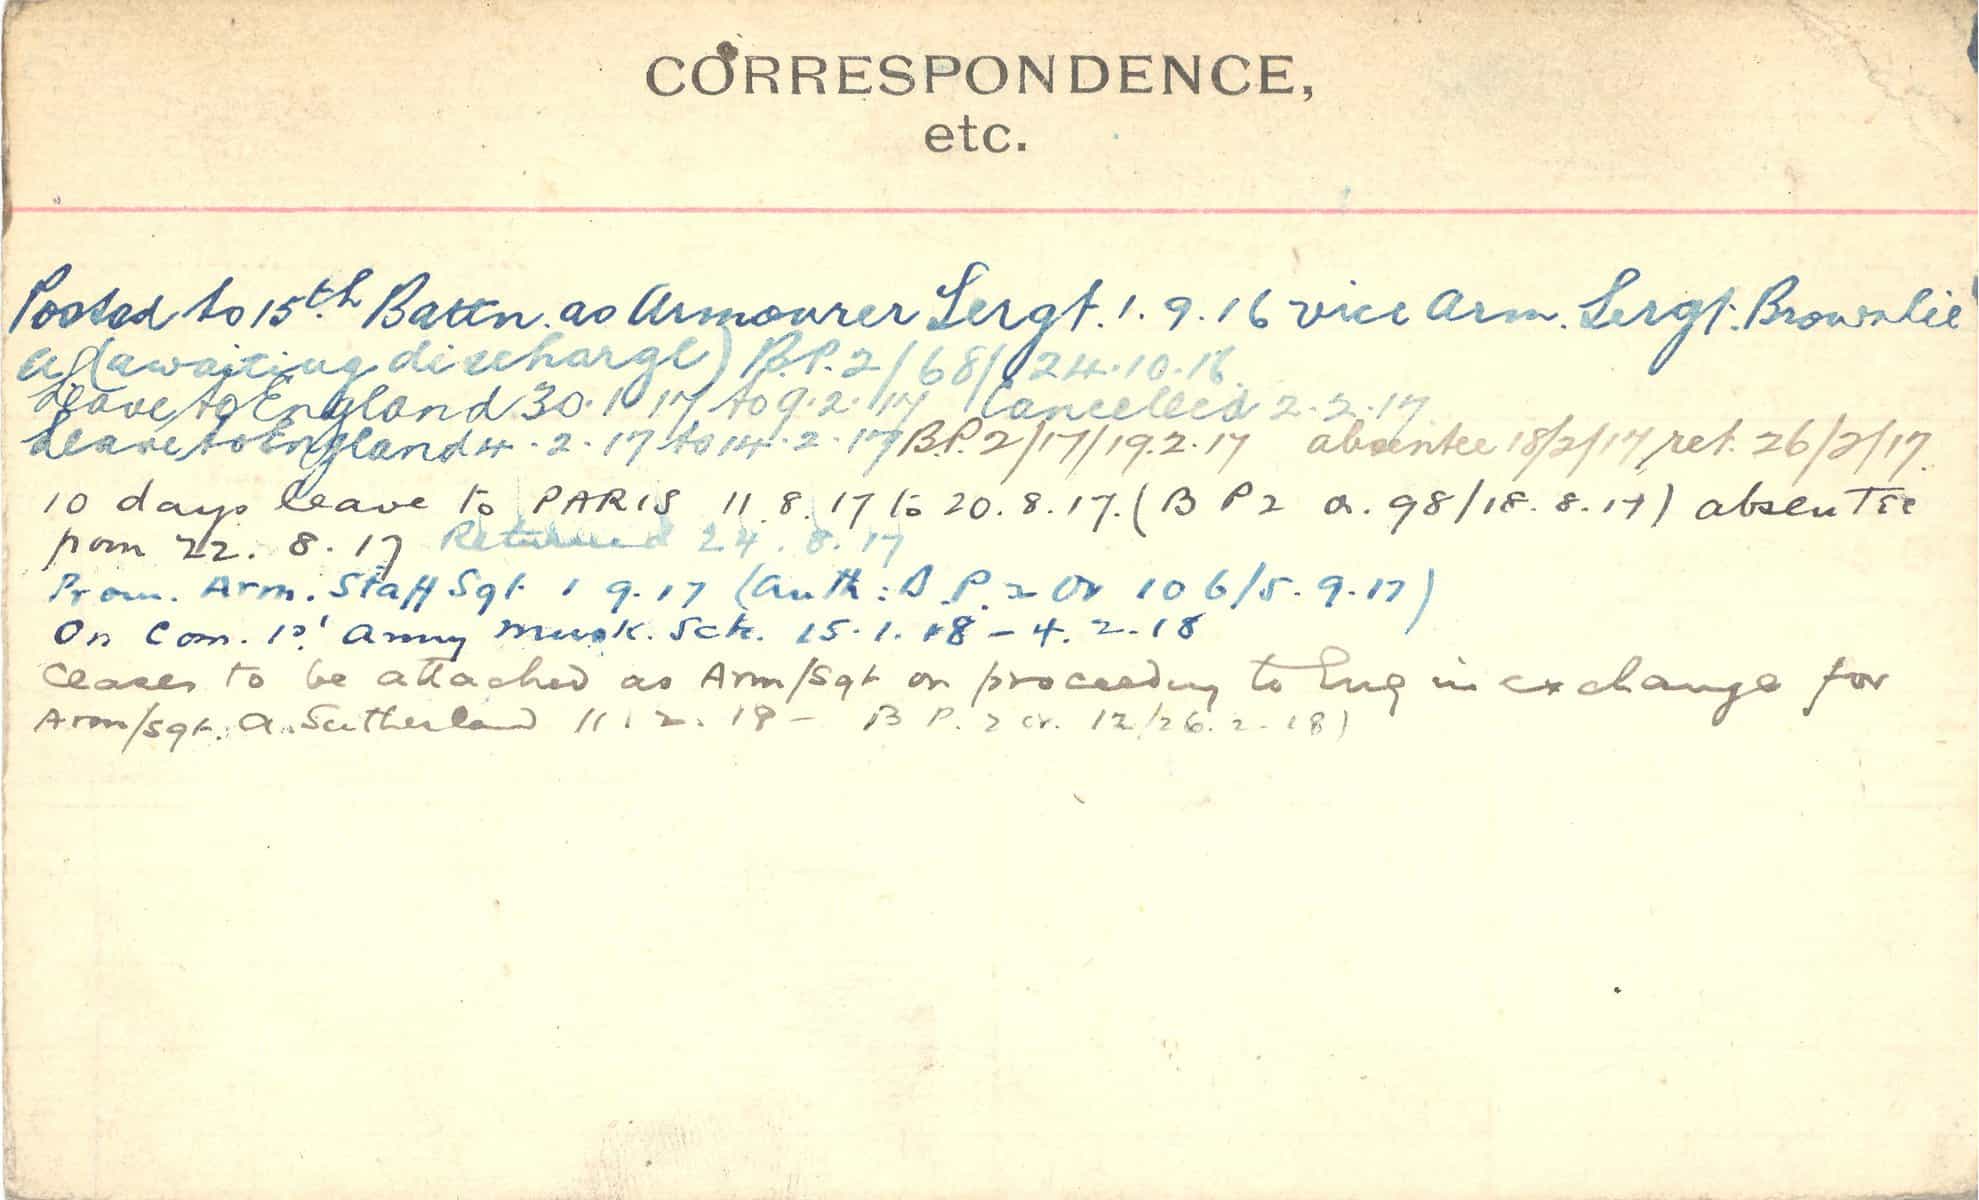 CORRESPONDENCE,
etc.
Posted to 15th Battn. as Armourer Sergt. 1.9.16 vice Arm. Sergt. Brownlie
A (awaiting discharge) B.P.2/68/24.10.16.
Leave to England 30.1.17 to 9.2.17 Cancelled 2.2.17
Leave to England 4.2.17 to 14.2.17 B.P.2/17/19.2.17 absentee 18/2/17 ret. 26/2/17.
10 days leave to PARIS 11.8.17 to 20.8.17. (B P 2 O. 98/18.8.17) absentee
from 22.8.17 Returned 24.8.17
Prom. Arm. Staff Sgt. 1 9.17 (Auth: B.P. 2 Or 106/5.9.17)
On Com. 1st Army Musk. Sch. 15.1.18 – 4.2.18
Ceases to be attached as Arm/Sgt on proceeding to Eng in exchange for
Arm/Sgt. A. Sutherland 11.2.18 – B P. 2 or. 12/26.2.18)